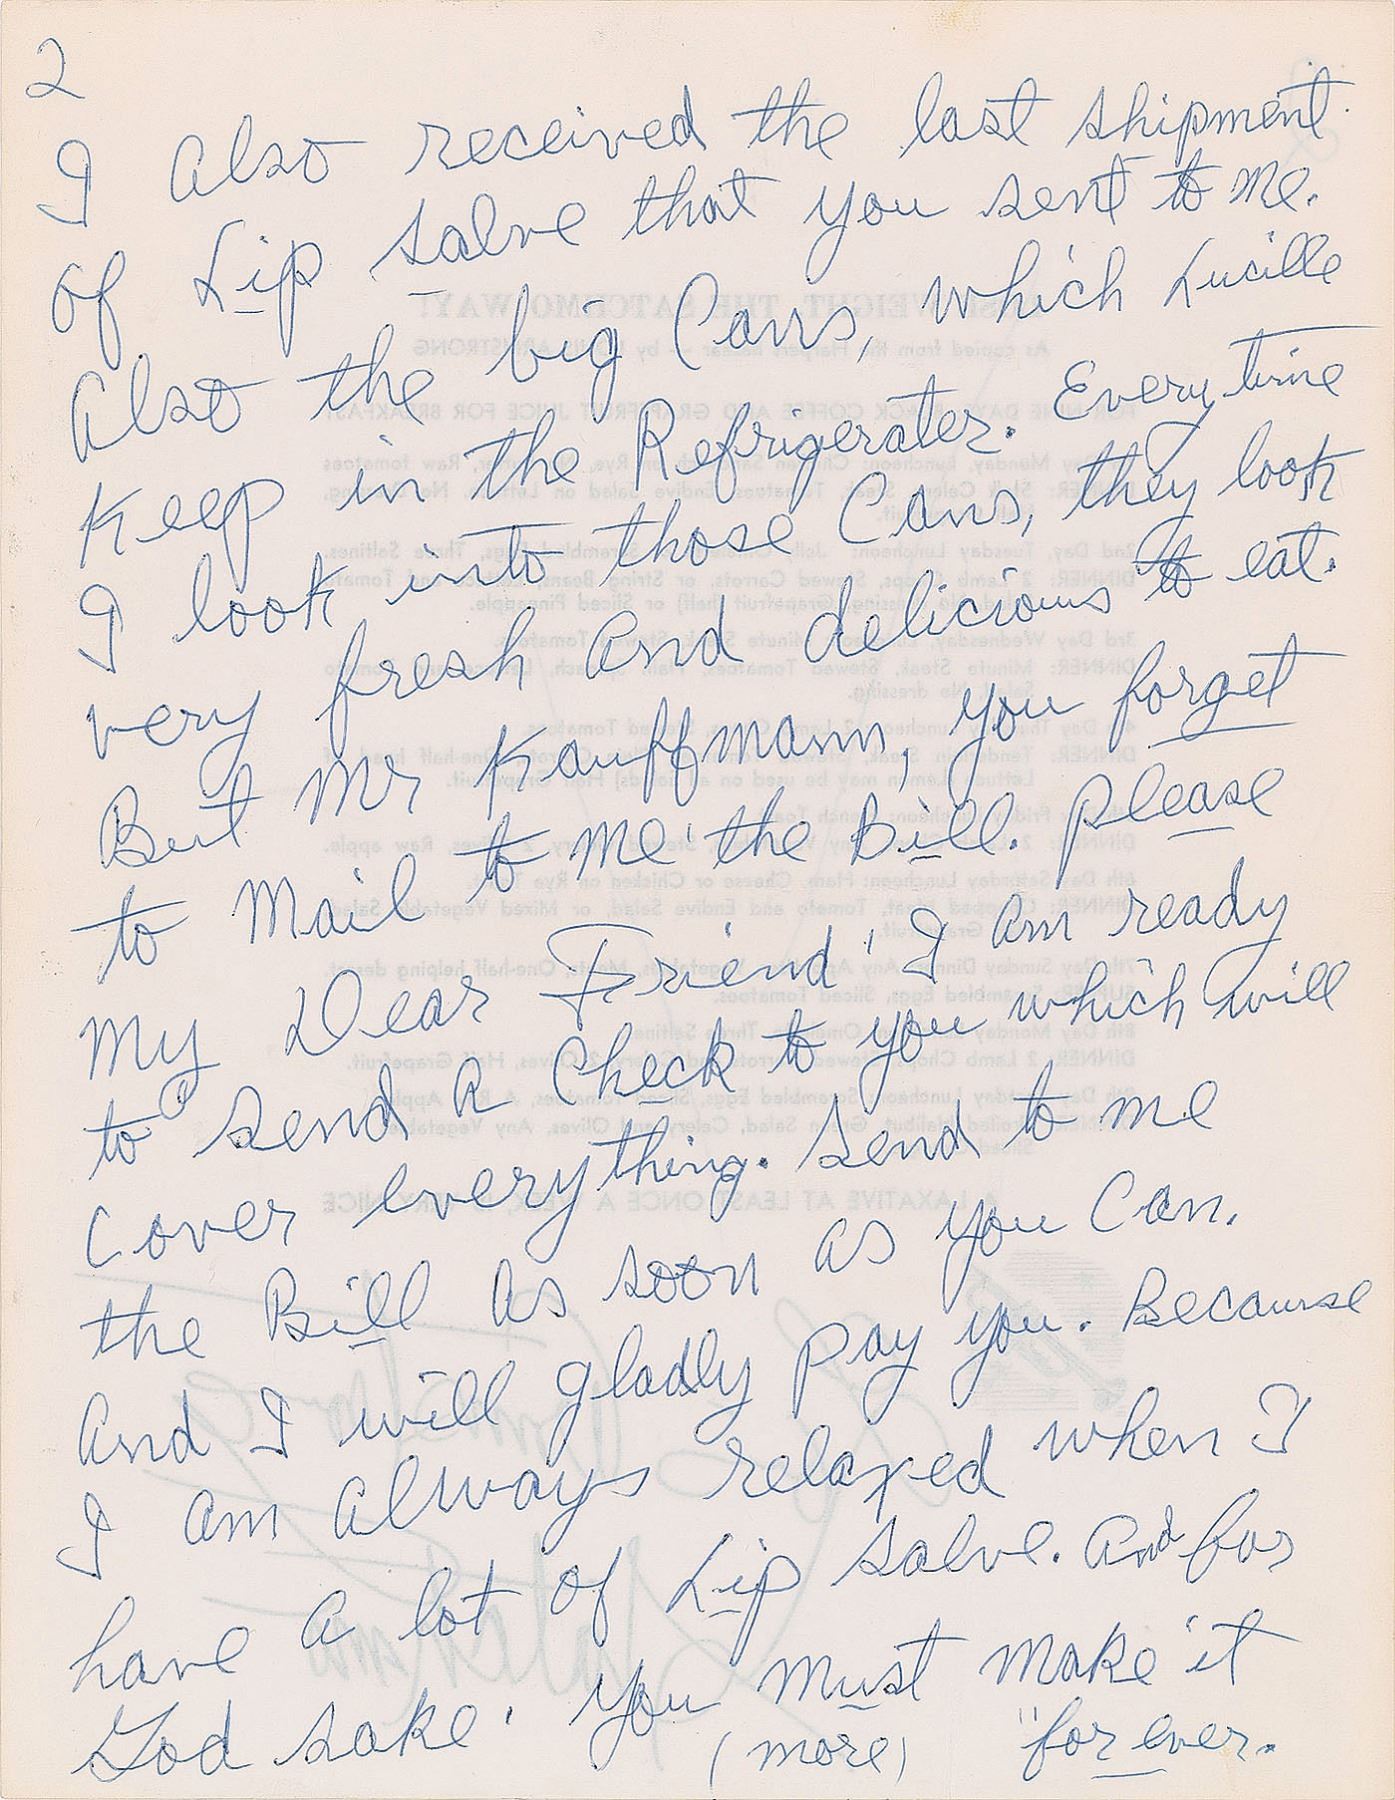 2
I Also received the last shipment
of Lip salve that you sent to me.
Also the big Cans, which Lucille
Keep in the Refrigerater. Every time
I look into those Cans, they look
very fresh and delicious to eat.
But Mr Kauffmann, you forget
to Mail to me' the Bill. Please
My Dear Friend' I am ready
to send A Check to you which will
Cover everything. Send to me
the Bill As soon as you Can.
And I will gladly pay you. Because
I am Always relaxed when I
have A lot of Lip salve. And for
God sake' you must make 'it
(more) "for ever.